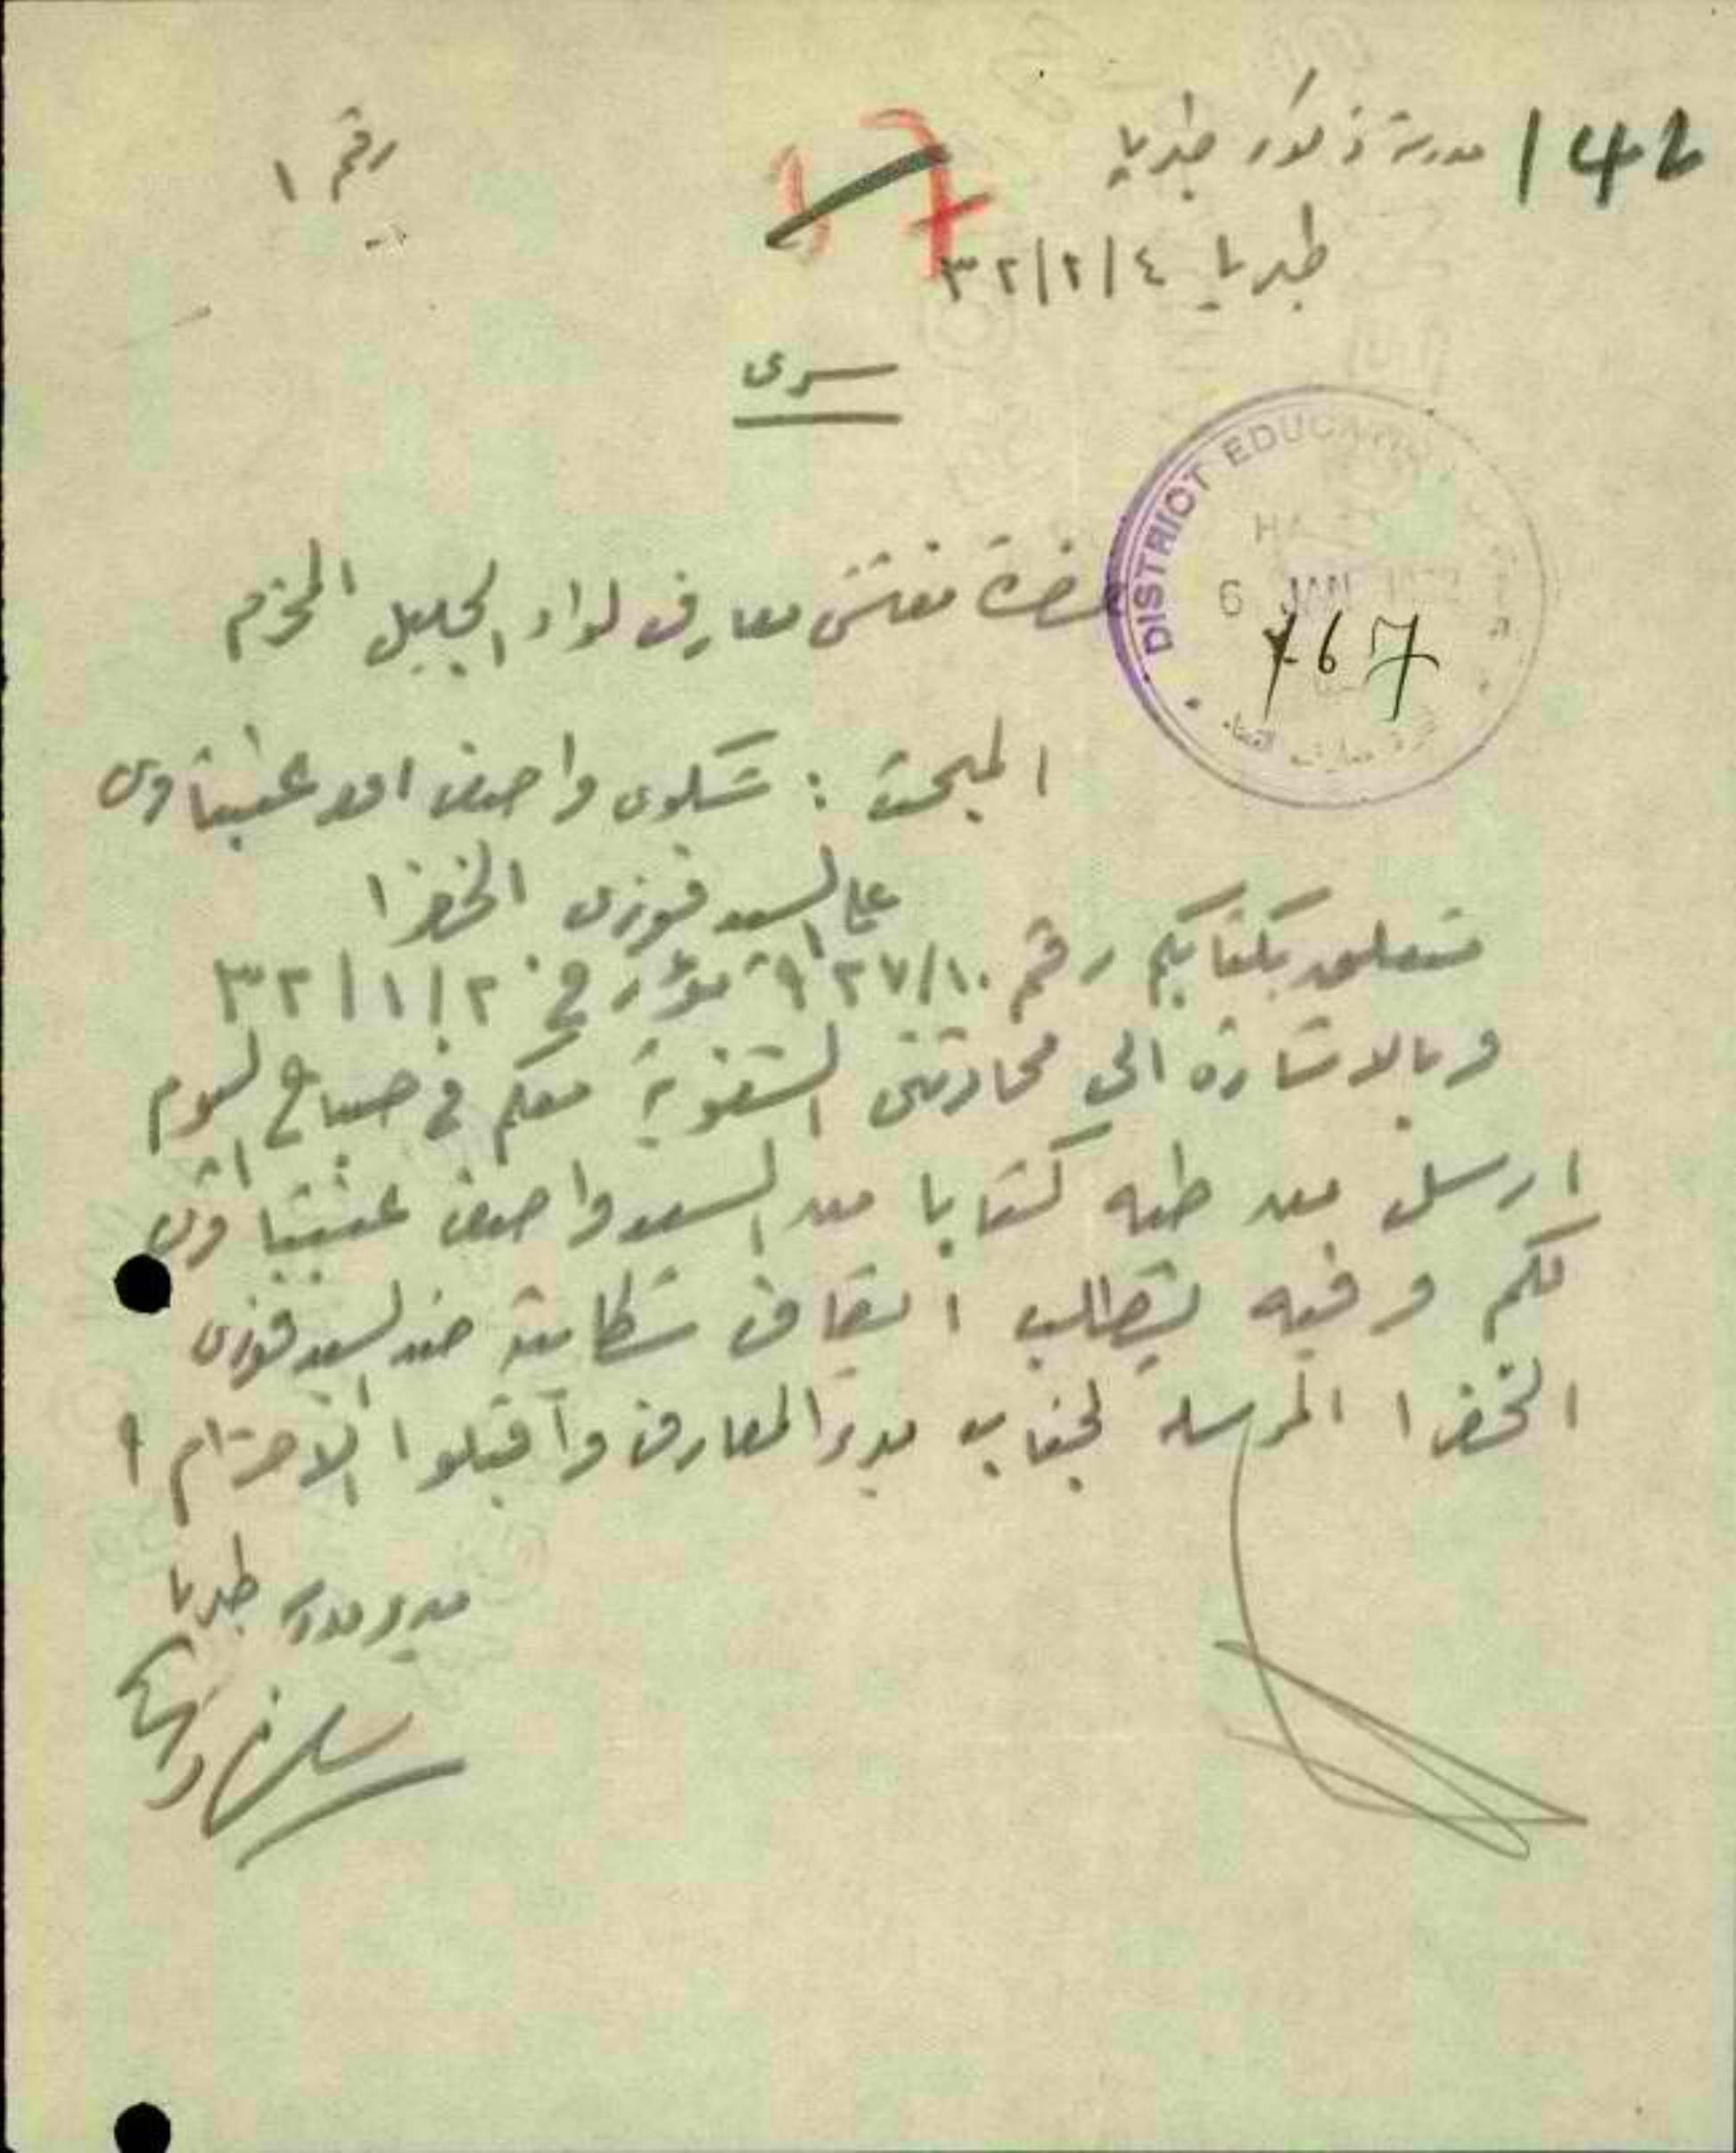 142
مدرسة ذكور طبريا
رقم ١
17
طبريا ٤/١/٣٢
سرى
DISTRICT EDUCATION
6 JAN
767
حضرة مفتش معارف لواء الجليل المحترم
المبحث : شكوى واصف احمد عشتاوى
على السيد فوزى الخضرا
متعلق بكتابكم رقم ٩٢٧/١٠ مؤرخ ٢/١/٣٢
وبالاشارة الى محادثتى الشفوية معكم في صباح اليوم
ارسل من طيه كتابا من السيد واصف عشتاوى
لكم وفيه يطلب ايقاف شكايته ضد السيد فوزى
الخضرا المرسله لجناب مدير المعارف واقبلوا الاحترام
مدير مدرسة طبريا